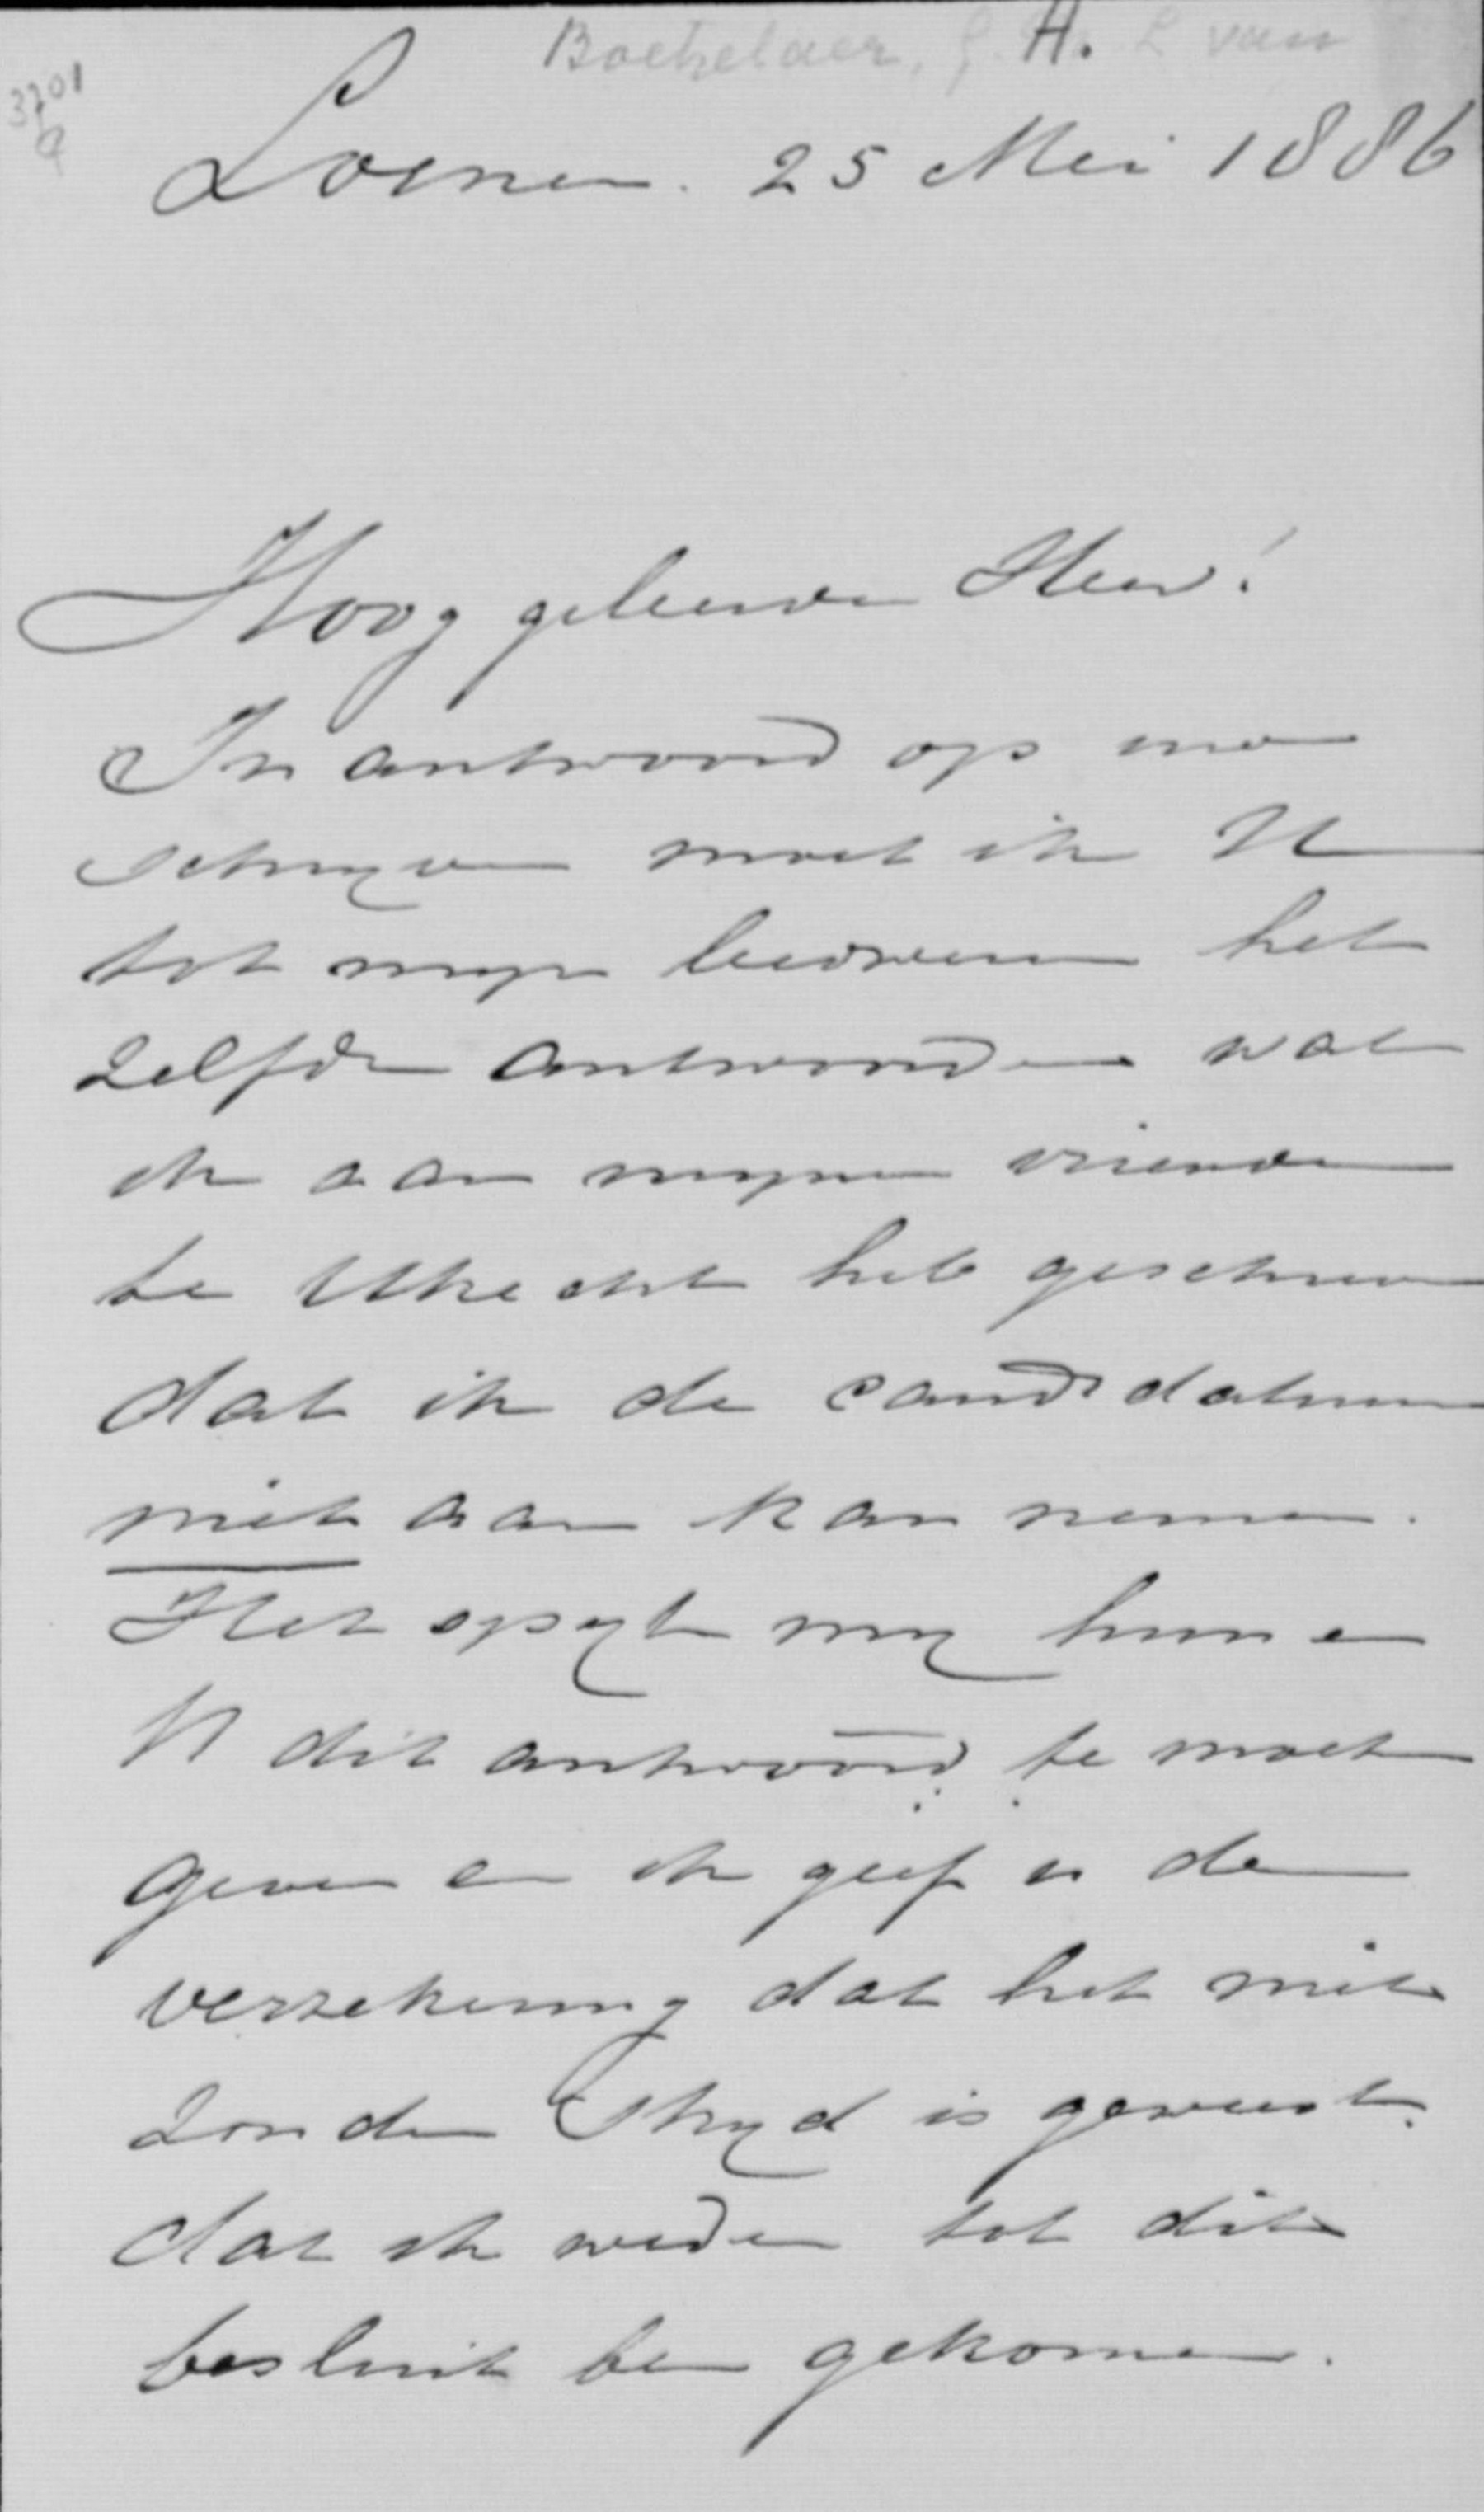 Boetzelaer, H. L van
3701
a
Loenen. 25 Mei 1886
Hoog geleerde Heer!
In antwoord op uw
schrijven moet ik U
tot mijn leedwezen het
zelfde antwoorden wat
ik aan mijne vrienden
te Utrecht heb geschreven
dat ik de candidatuur
niet aan kan nemen.
Het spijt mij hun en
U dit antwoord te moeten
geven en ik geef u de
verzekering dat het niet
zonder Strijd is geweest
dat ik weder tot dit
besluit ben gekomen.